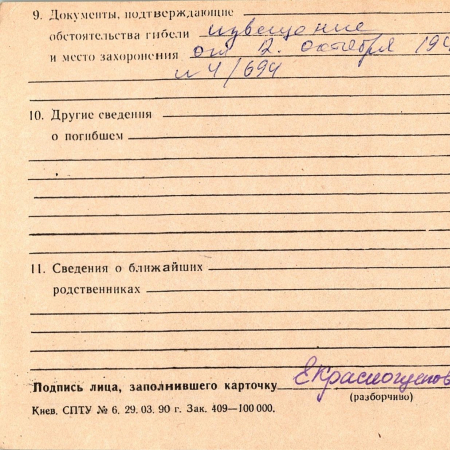 9. Документы, подтверждающие
обстоятельства гибели извещение
и место захоронения от 2. октября 194
и 4/694
10. Другие сведения
о погибшем
11. Сведения о ближайших
родственниках
Подпись лица, заполнившего карточку
(разборчиво)
Киев. СПТУ № 6. 29. 03. 90 г. Зак. 409—100 000.